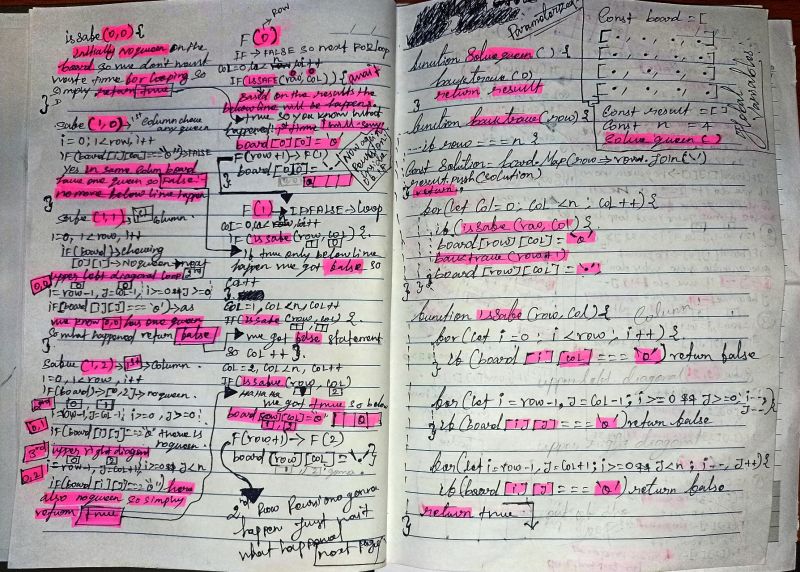 issabe(0,0){
Initially no queen on the
board so we don't want
waste time bor looping so
simply return true
}
sabe(1,0) → 1st column chave any queen
i=0; i<row, i++
IF(board[i][col]==='Q')→FALSE
Yes in same colum board
have one queen so False
no move below line typer
sabe(1,1) 1st column
i=0, i<row, i++
if(board) → showing
[0][1] → No queen → next
0,0 upper left diagonal loop 2nd
i=row-1, J=col-1, i>=0, J>=0
if(board[i][J]==='Q')→as
we know 0,0 has one queen
so what happened return false
sabee(1,2) → 1st → column
i=0, i<row, i++
if(board)→[0,2] no queen
2nd
i=row-1, J=col-1; i>=0, J>=0
0,1 if(board[i][J]==='Q' there is
no queen
3rd upper right diagonal
0,2 i=row-1, J=col+1, i>=0 && J<n
if(board[i][J]==='Q') here
also no queen so simply
return true
F(0) → Row
IF → FALSE so next For loop
col=0, col<n, col++
IF(issafe(row, col)) { await
based on the results the
below line will be happen
→ true so you know what
happened! 1st time I will say
board[0][0]='Q'
F(row+1) → F(1)
board[0][0]=
}
F(1) → IF FALSE → loop
col=0, col<n, col++
if(issabe(row, col)) {
→ it true only below line
happen we got false so
col++
}
col=1, col<n, col++
IF(issabe(row, col)) {
→ we got false statement
so col++ }.
col=2, col<n, col++
IF(issabe(row, col)
→ HAHAHA
we got true so below
board[row][col]='Q'
F(row+1) → F(2)
board[row][col]='.'
}
2nd Row Recursion gonna
happen just wait
what happened
next page
Paramoterized
function Solvequeen() {
backtrace(0)
return result
}
function backtrace(row) {
if row === n {
Const solution = board.Map(row => row.Join(''))
result.push(solution)
return;
}
bor(let Col=0; Col<n; Col++) {
ib(issabe(row, col) {
board[row][col]='Q'
backtrace(row+1)
board[row][col]='.'
}
}
}
Const board = [
[., ., ., .],
[., ., ., .],
[., ., ., .],
[., ., ., .]
]
Const result = []
Const n = 4
Solvequeen()
Global Variables
function issabe(row, col) {
bor(let i=0; i<row; i++) {
ib(board[i][col] === 'Q') return balse
}
bor(let i=row-1, J=col-1; i>=0 && J>=0; i--, J--) {
ib(board[i][J] === 'Q') return balse
}
bor(let i=row-1, J=col+1; i>=0 && J<n; i--, J++) {
ib(board[i][J] === 'Q') return balse
}
return true
}